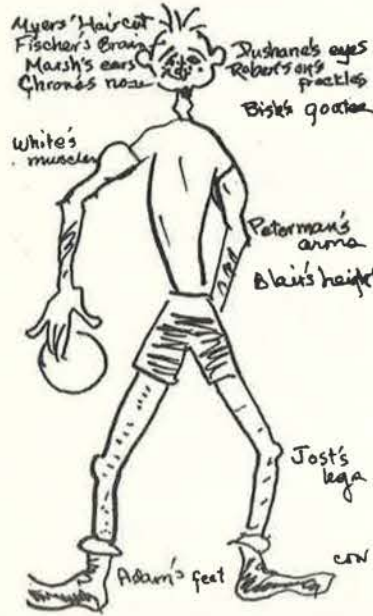 Myers' Haircut
Fischer's Brain
Marsh's ears
Chrone's nose
Dushane's eyes
Robertson's
freckles
Bisk's goatee
White's
muscles
Peterman's
arms
Blair's height
Jost's
legs
Adam's feet